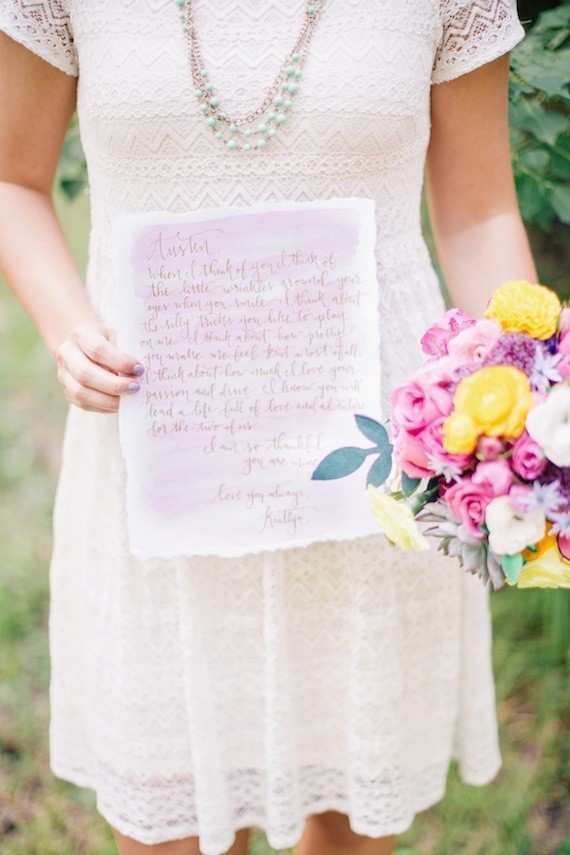 Austen,
When I think of you I think of
the little wrinkles around your
eyes when you smile. I think about
the silly tricks you like to play
on me. I think about how pretty
you make me feel. But most of all,
I think about how much I love your
passion and drive. I know you will
lead a life full of love and adventure
for the two of us.
I am so thankful
you are mine
love you always,
Kaitlyn